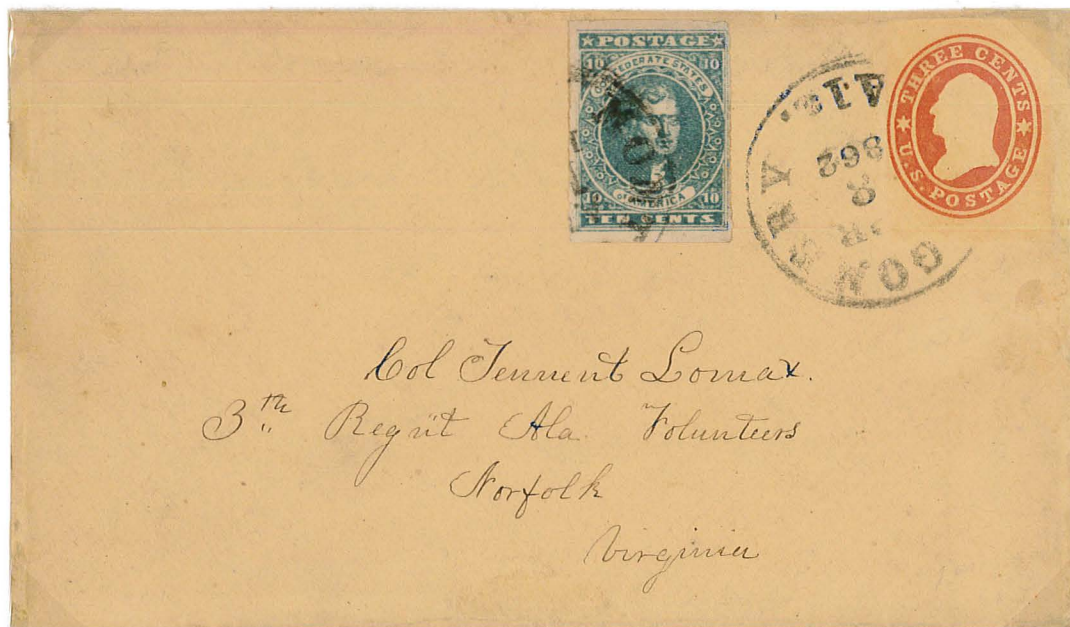 ★POSTAGE★
10 10
CONFEDERATE STATES
OF AMERICA
10 10
TEN CENTS
GOMERY Ala.
8
862
★ THREE CENTS ★
U.S. POSTAGE
Col Tennent Lomax.
3th Regi't Ala. Volunteers
Norfolk
Virginia